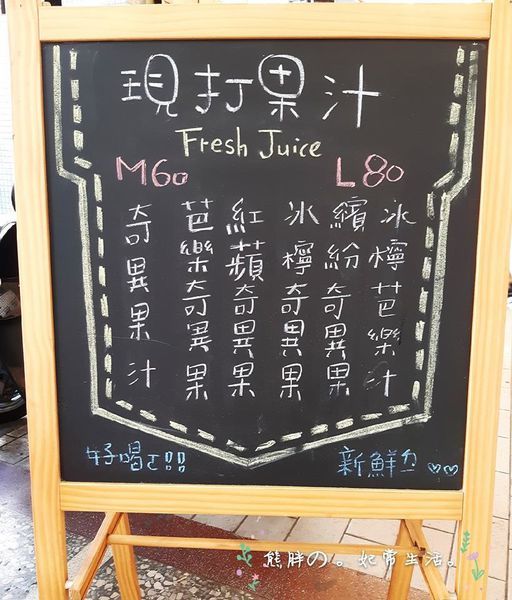 現打果汁
Fresh Juice
M60 L80
冰檸芭樂汁
繽紛奇異果
冰檸奇異果
紅蘋奇異果
芭樂奇異果
奇異果汁
好喝ㄛ!!
新鮮ㄉ♡♡
熊胖の。妃常生活。